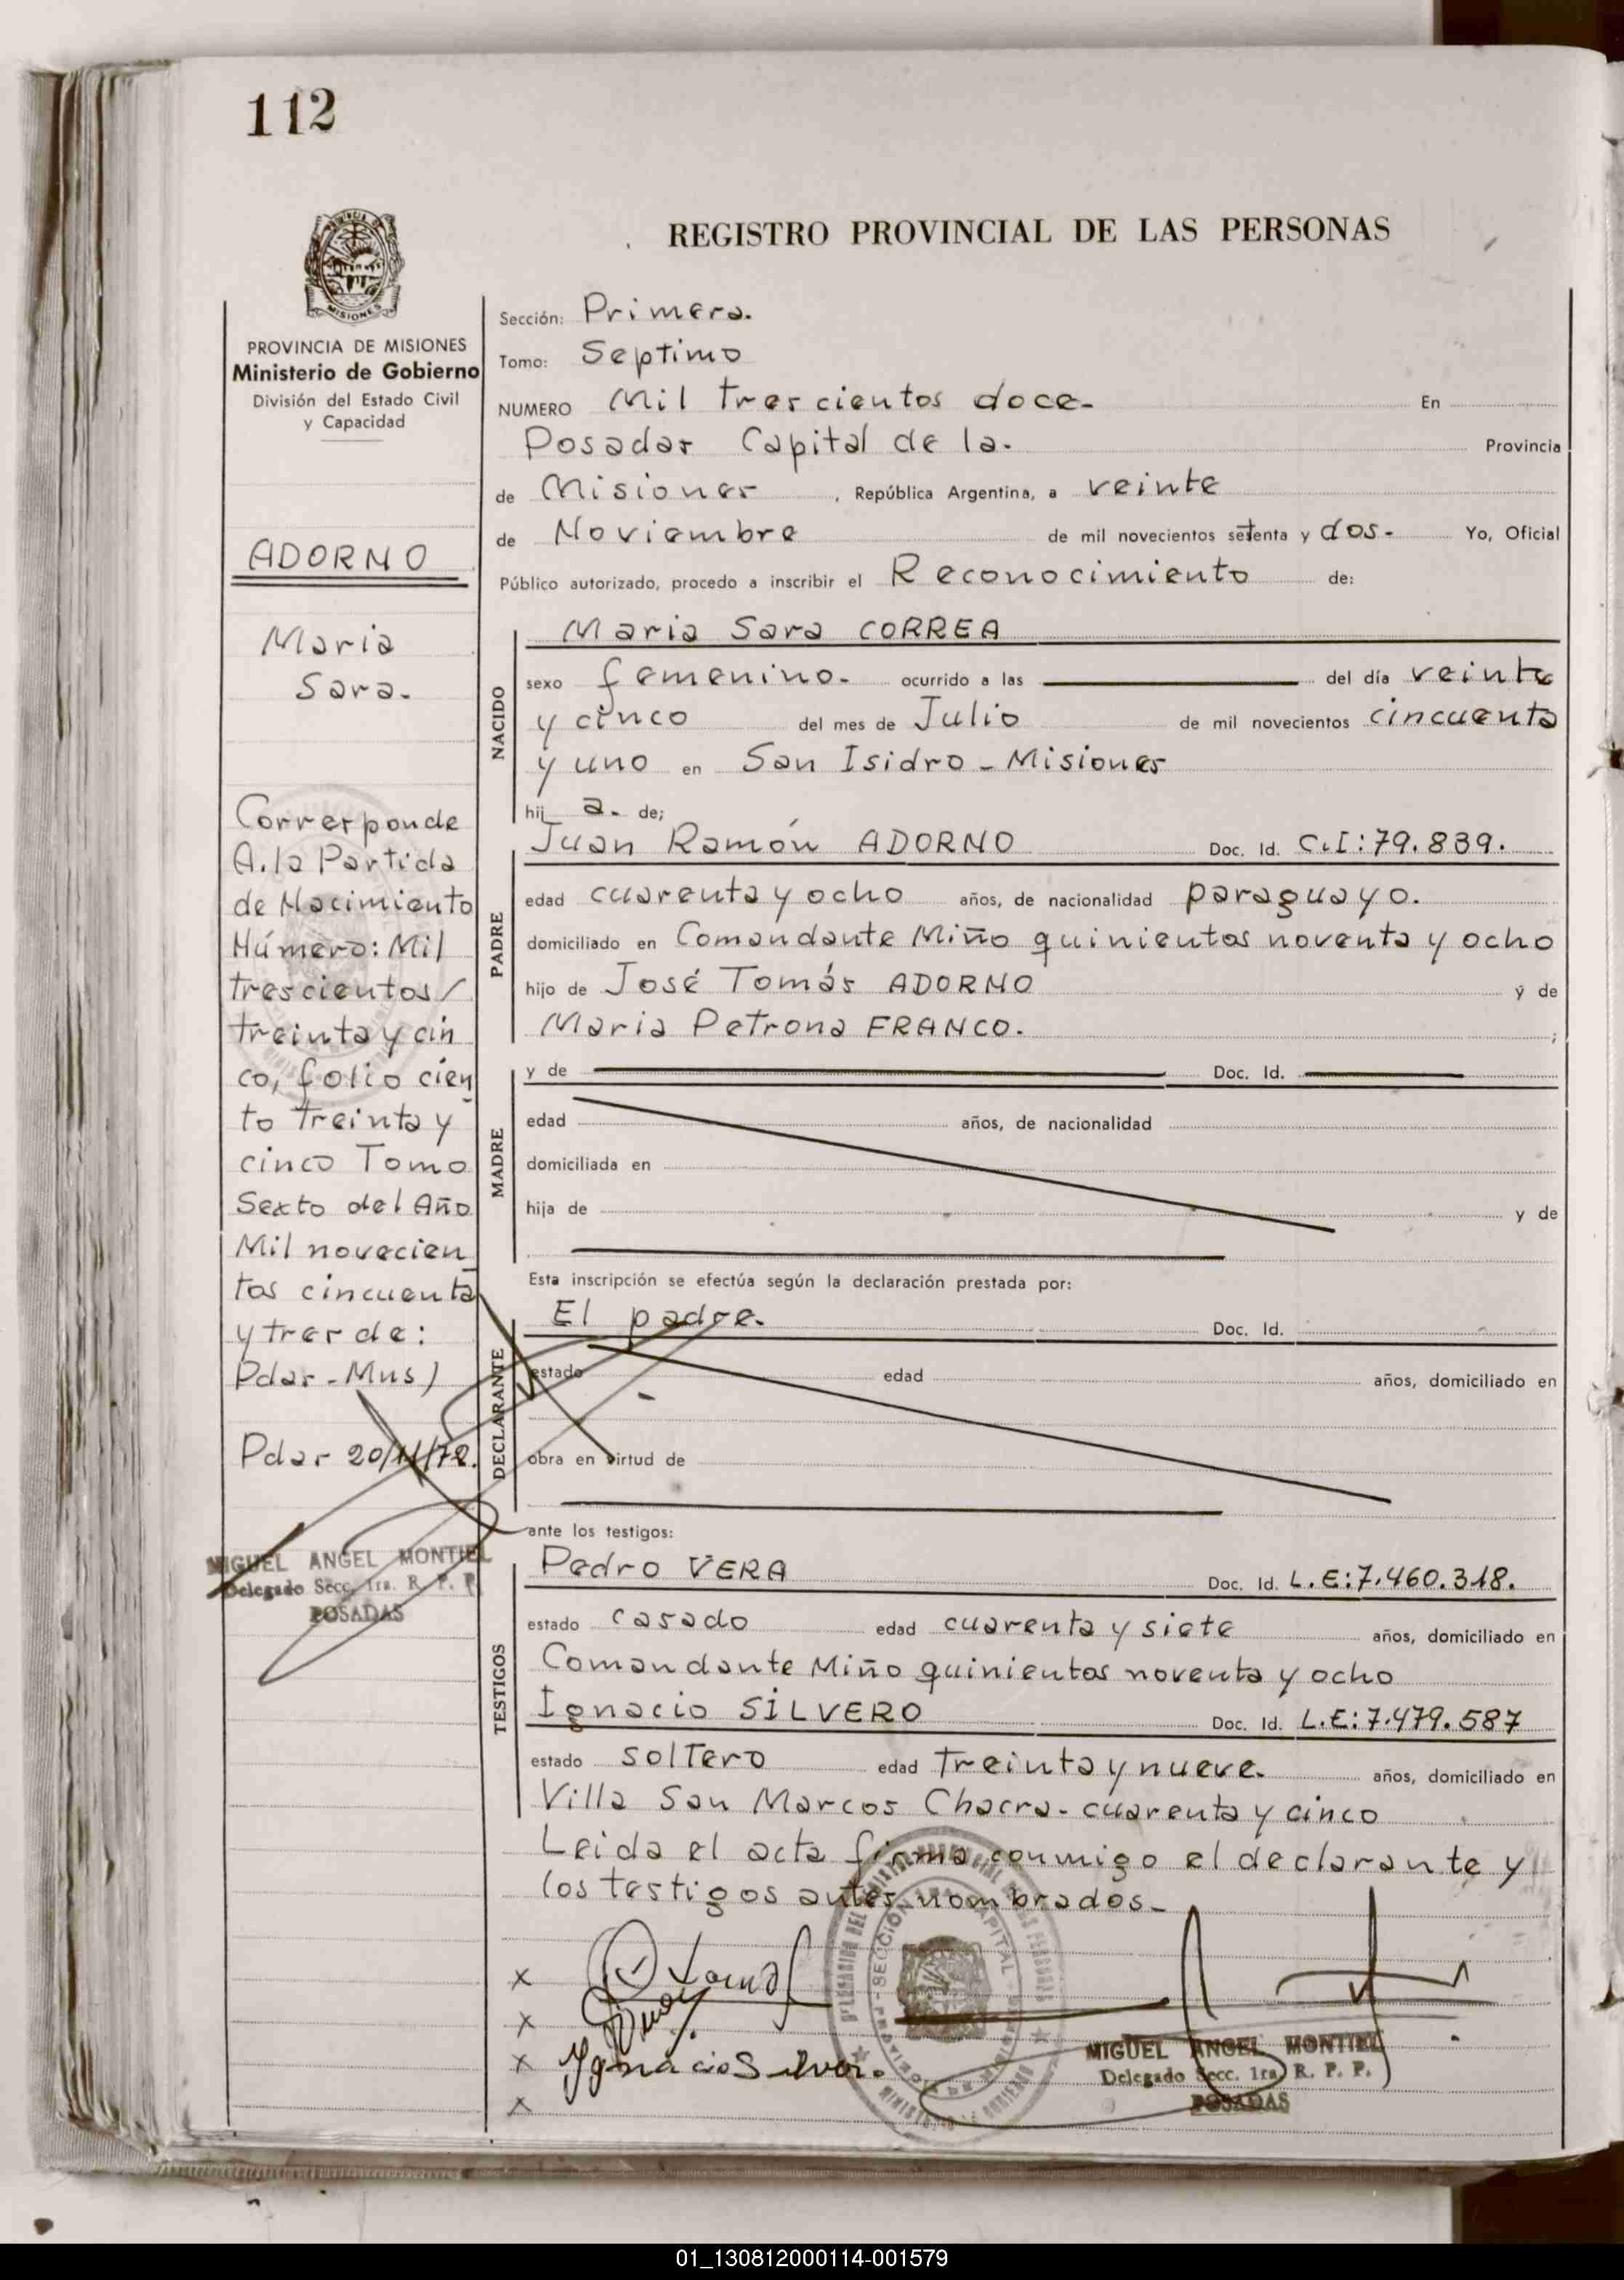 112
REGISTRO PROVINCIAL DE LAS PERSONAS
MISIONES
PROVINCIA DE MISIONES
Ministerio de Gobierno
División del Estado Civil
y Capacidad
ADORNO
Maria
Sara.
Corresponde
A. la Partida
de Nacimiento
Número: Mil
trescientos /
treinta y cin
co, folio cien
to treinta y
cinco Tomo
Sexto del Año
Mil novecien
tos cincuenta
y tres de:
Pdas - Mns)
Pdas 20/11/72.
MIGUEL ANGEL MONTIEL
Delegado Secc. 1ra. R. P. P.
POSADAS
Sección: Primera.
Tomo: Septimo
NUMERO Mil trescientos doce- En
Posadas Capital de la. Provincia
de Misiones , República Argentina, a veinte
de Noviembre de mil novecientos setenta y dos- Yo, Oficial
Público autorizado, procedo a inscribir el Reconocimiento de:
NACIDO
Maria Sara CORREA
sexo femenino- ocurrido a las del día veinte
y cinco del mes de Julio de mil novecientos cincuenta
y uno en San Isidro - Misiones
hij a. de;
PADRE
Juan Ramón ADORNO Doc. Id. C.I: 79.839.
edad cuarenta y ocho años, de nacionalidad paraguayo.
domiciliado en Comandante Miño quinientos noventa y ocho
hijo de José Tomás ADORNO y de
Maria Petrona FRANCO. ;
MADRE
y de Doc. Id.
edad años, de nacionalidad
domiciliada en
hija de y de
Esta inscripción se efectúa según la declaración prestada por:
DECLARANTE
El padre. Doc. Id.
estado edad años, domiciliado en
obra en virtud de
ante los testigos:
TESTIGOS
Pedro VERA Doc. Id. L.E: 7.460.318.
estado casado edad cuarenta y siete años, domiciliado en
Comandante Miño quinientos noventa y ocho
Ignacio SILVERO Doc. Id. L.E: 7.479.587
estado soltero edad treinta y nueve. años, domiciliado en
Villa San Marcos Chacra- cuarenta y cinco
Leida el acta firma conmigo el declarante y
los testigos antes nombrados-
x
x
x Ignacio Silvero.
x
MIGUEL ANGEL MONTIEL
Delegado Secc. 1ra R. P. P.
POSADAS
01_130812000114-001579